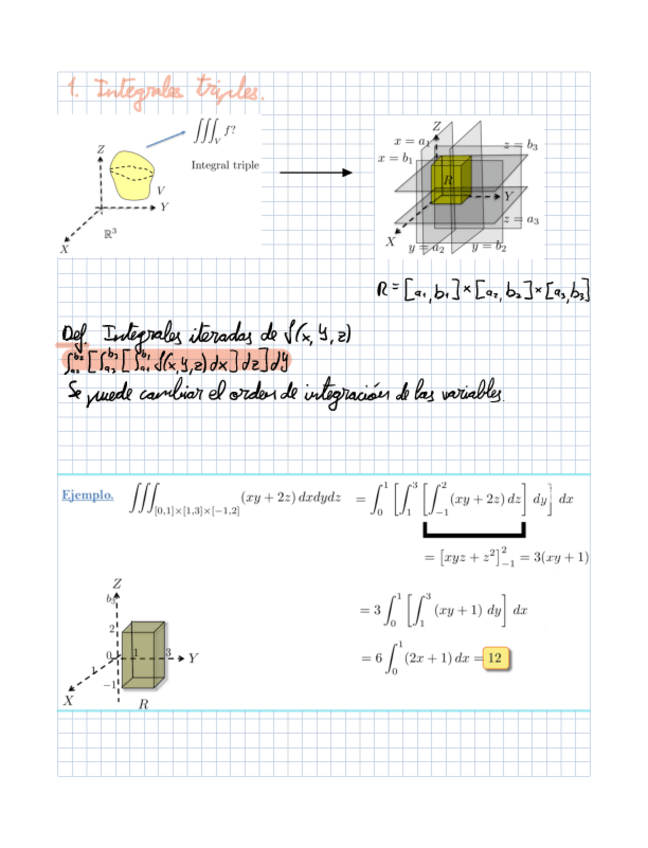 1. Integrales triples.
∭_V f?
Integral triple
Z
V
Y
X
ℝ³
Z
x = a₁
x = b₁
z = b₃
R
Y
z = a₃
X
y = a₂
y = b₂
R = [a₁, b₁] × [a₂, b₂] × [a₃, b₃]
Def. Integrales iteradas de f(x, y, z)
∫_{a₂}^{b₂} [ ∫_{a₃}^{b₃} [ ∫_{a₁}^{b₁} f(x, y, z) dx ] dz ] dy
Se puede cambiar el orden de integración de las variables.
Ejemplo. ∭_{[0,1]×[1,3]×[−1,2]} (xy + 2z) dxdydz = ∫_0^1 [ ∫_1^3 [ ∫_{−1}^2 (xy + 2z) dz ] dy ] dx
= [xyz + z²]_{−1}^2 = 3(xy + 1)
= 3 ∫_0^1 [ ∫_1^3 (xy + 1) dy ] dx
= 6 ∫_0^1 (2x + 1) dx = 12
Z
b₃
2
0
1
3
Y
1
−1
X
R